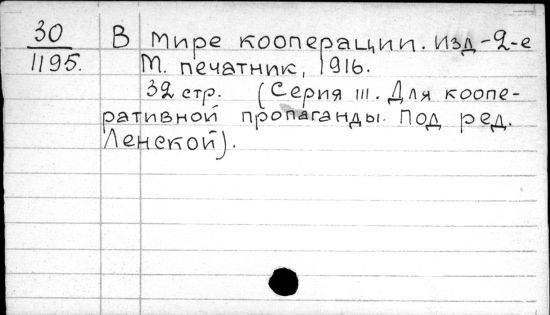 30 В мире кооперации. Изд-2-е
1195. М. печатник, 1916.
32 стр. (Серия III. Для коопе-
ративной пропаганды. Под ред.
Ленской).